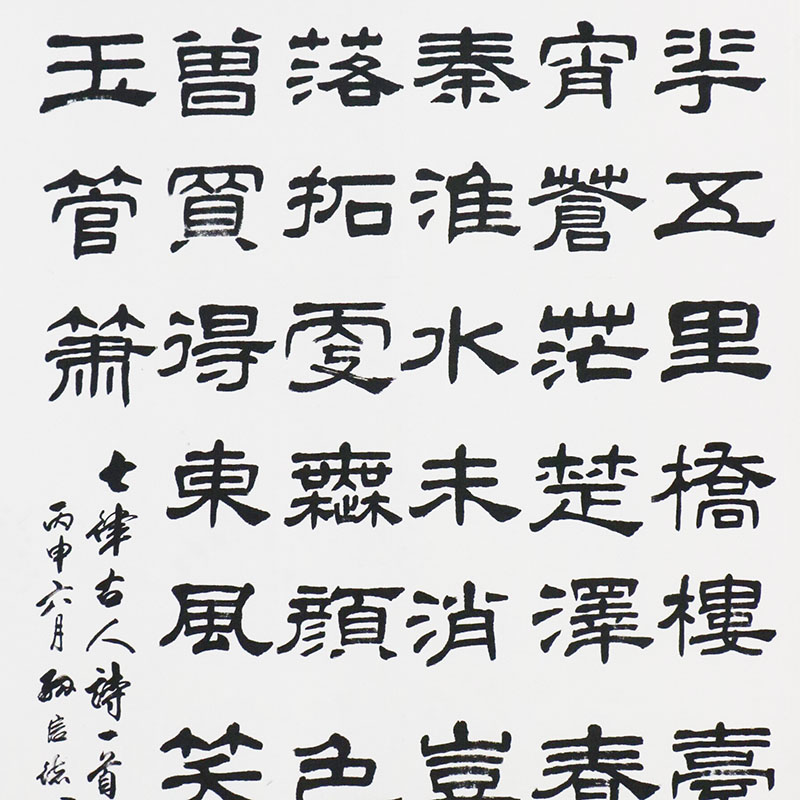 平五里橋樓臺
宵蒼茫楚澤春
秦淮水未消豈
落拓顏色
曾質得東風笑
玉管簫
七律古人詩一首
丙申六月孫信德